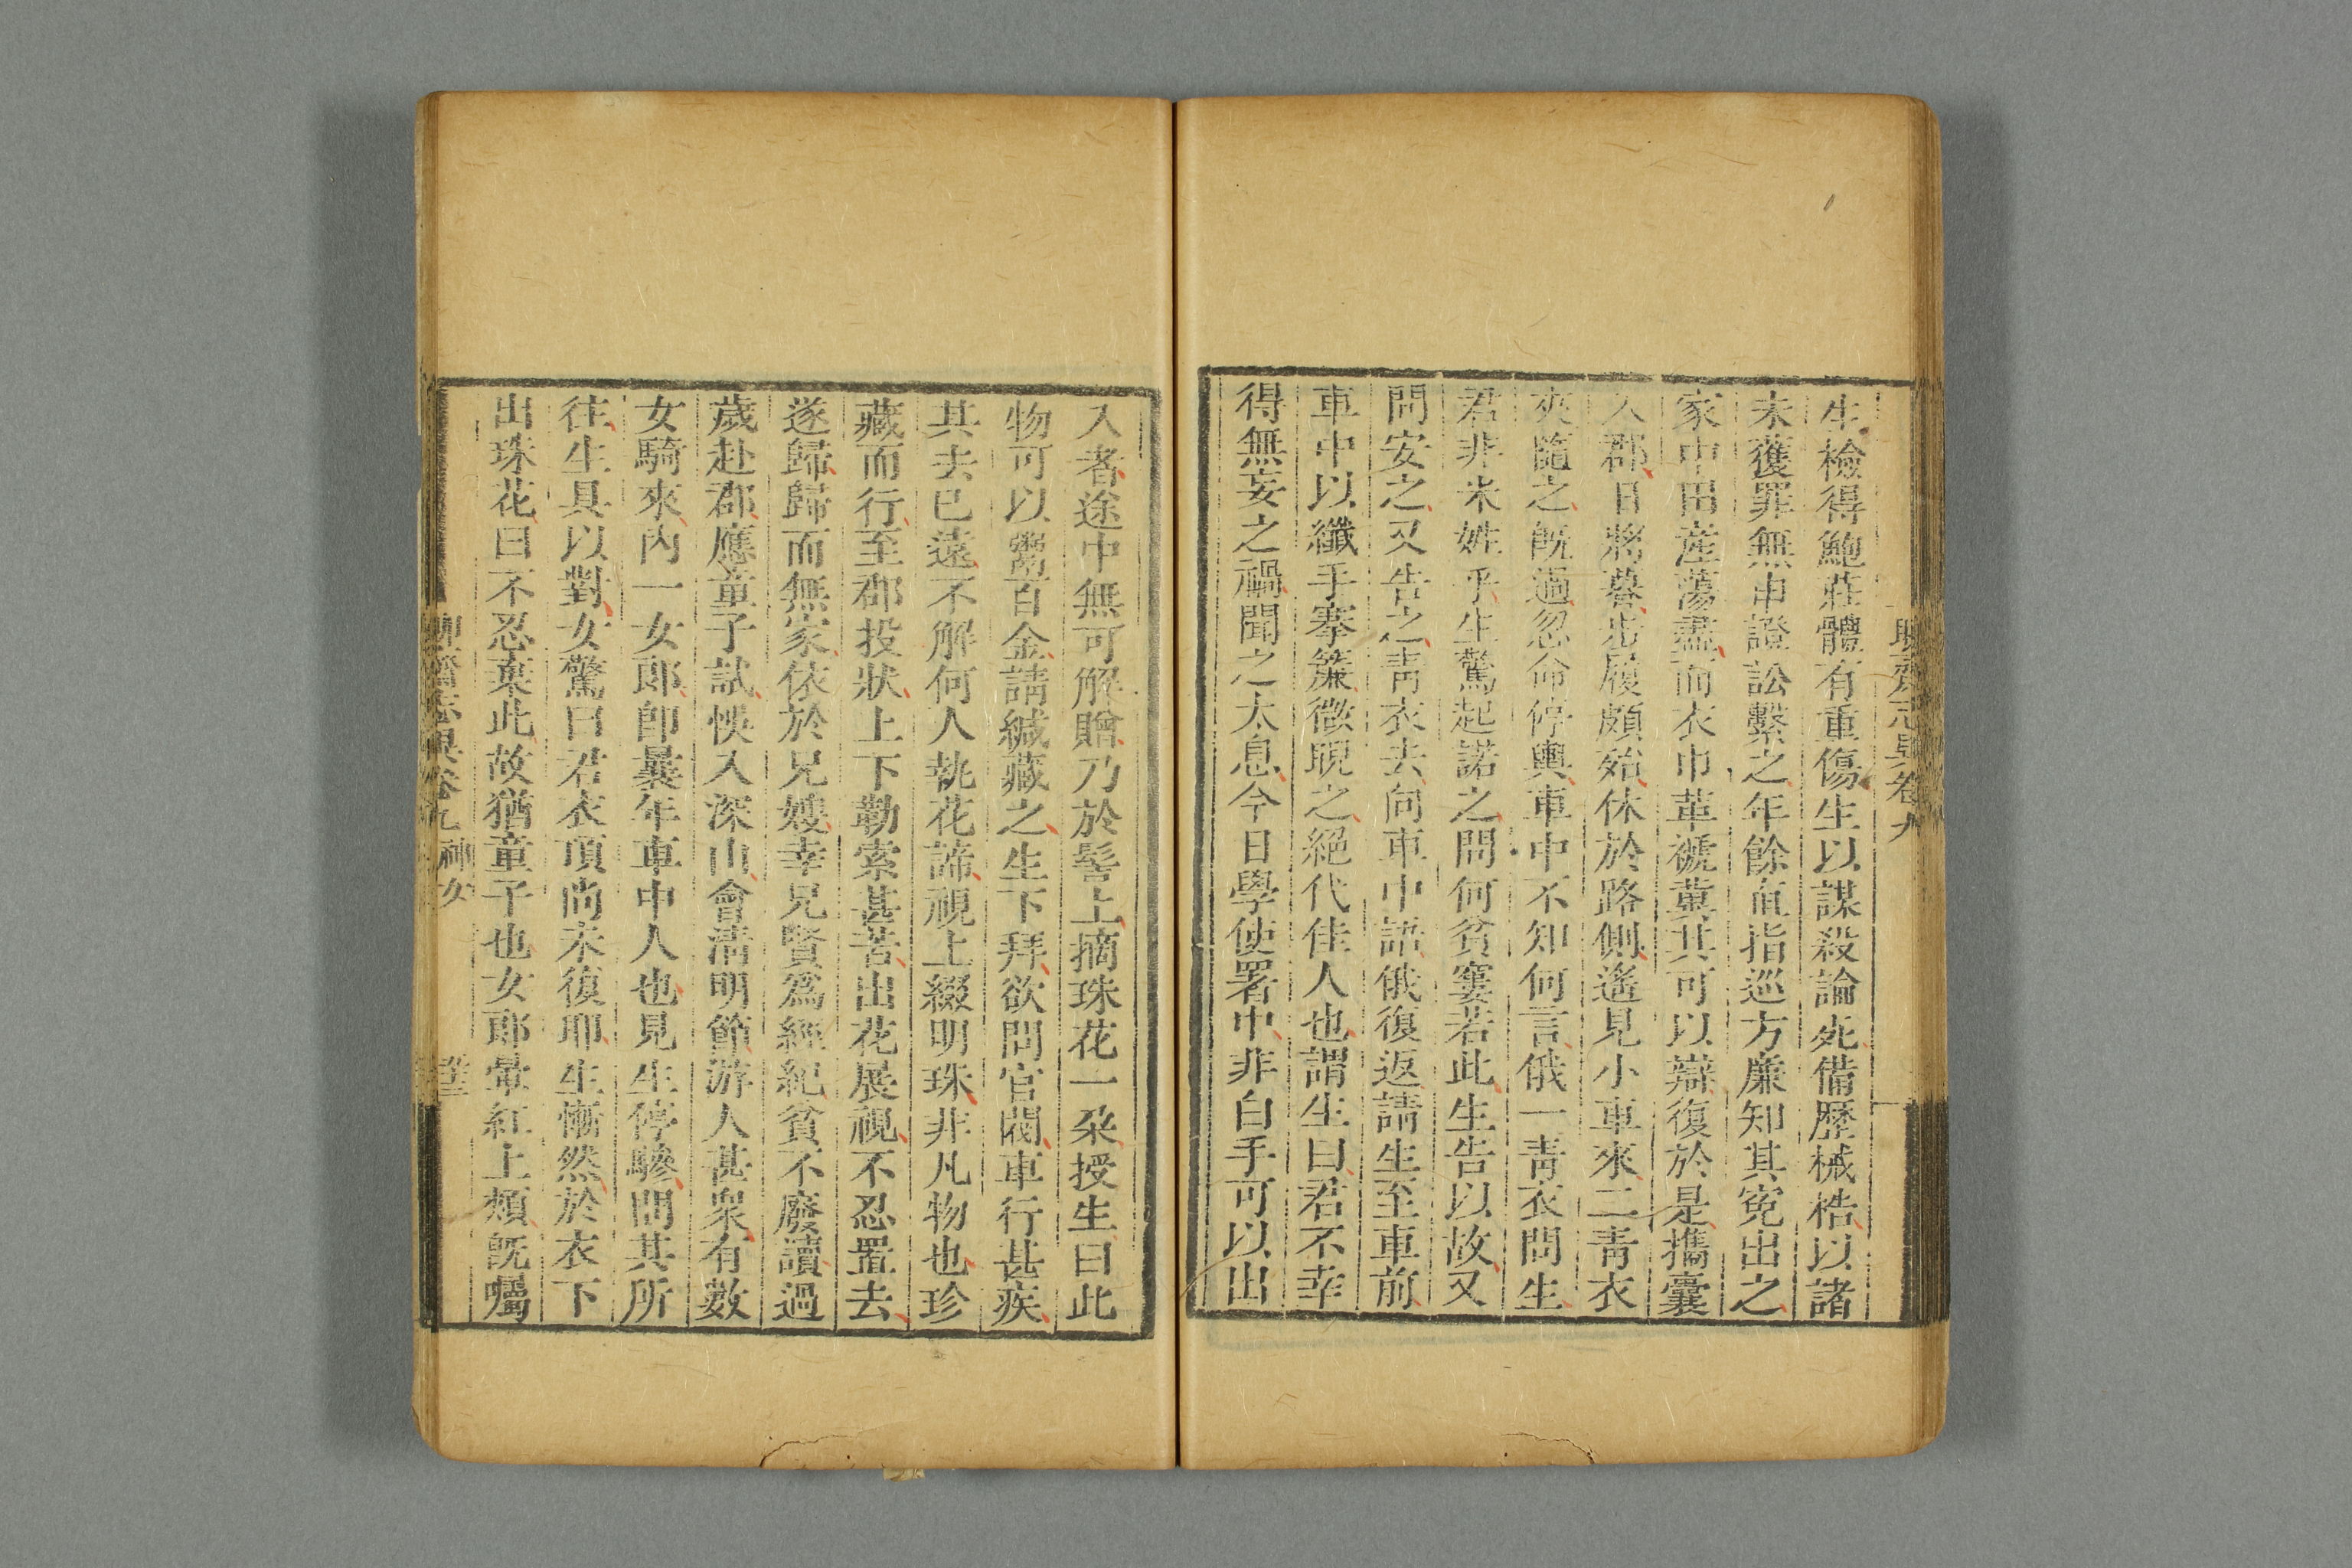 聊齋志異卷九
生檢得鮑莊體有重傷生以謀殺論死備歷械梏以諸
未獲罪無申證訟繫之年餘直指巡方廉知其寃出之
家中田產蕩盡而衣巾革褫冀其可以辯復於是攜囊
入郡日將暮步履頗殆休於路側遙見小車來二青衣
夾隨之旣過忽命停輿車中不知何言俄一青衣問生
君非米姓乎生驚起諾之問何貧窶若此生告以故又
問安之又告之青衣去向車中語俄復返請生至車前
車中以纖手搴簾微睨之絕代佳人也謂生曰君不幸
得無妄之禍聞之太息今日學使署中非白手可以出
入者途中無可解贈乃於髻上摘珠花一朵授生曰此
物可以鬻百金請緘藏之生下拜欲問官閥車行甚疾
其去已遠不解何人執花諦視上綴明珠非凡物也珍
藏而行至郡投狀上下勒索甚苦出花展視不忍置去
遂歸歸而無家依於兄嫂幸兄賢爲經紀貧不廢讀過
歲赴郡應童子試悞入深山會清明節游人甚衆有數
女騎來內一女郎卽曩年車中人也見生停驂問其所
往生具以對女驚曰君衣頂尚未復耶生慚然於衣下
出珠花曰不忍棄此故猶童子也女郎暈紅上頰旣囑
聊齋志異卷九 神女